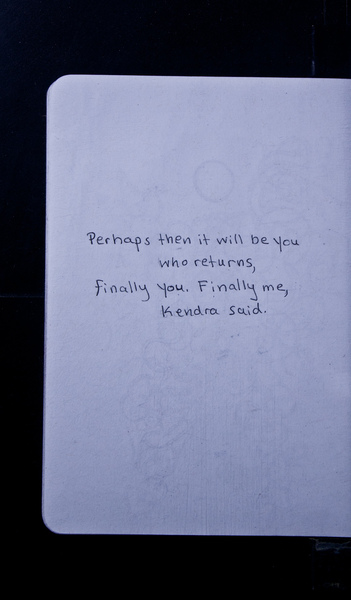 Perhaps then it will be you
who returns,
finally you. Finally me,
Kendra said.